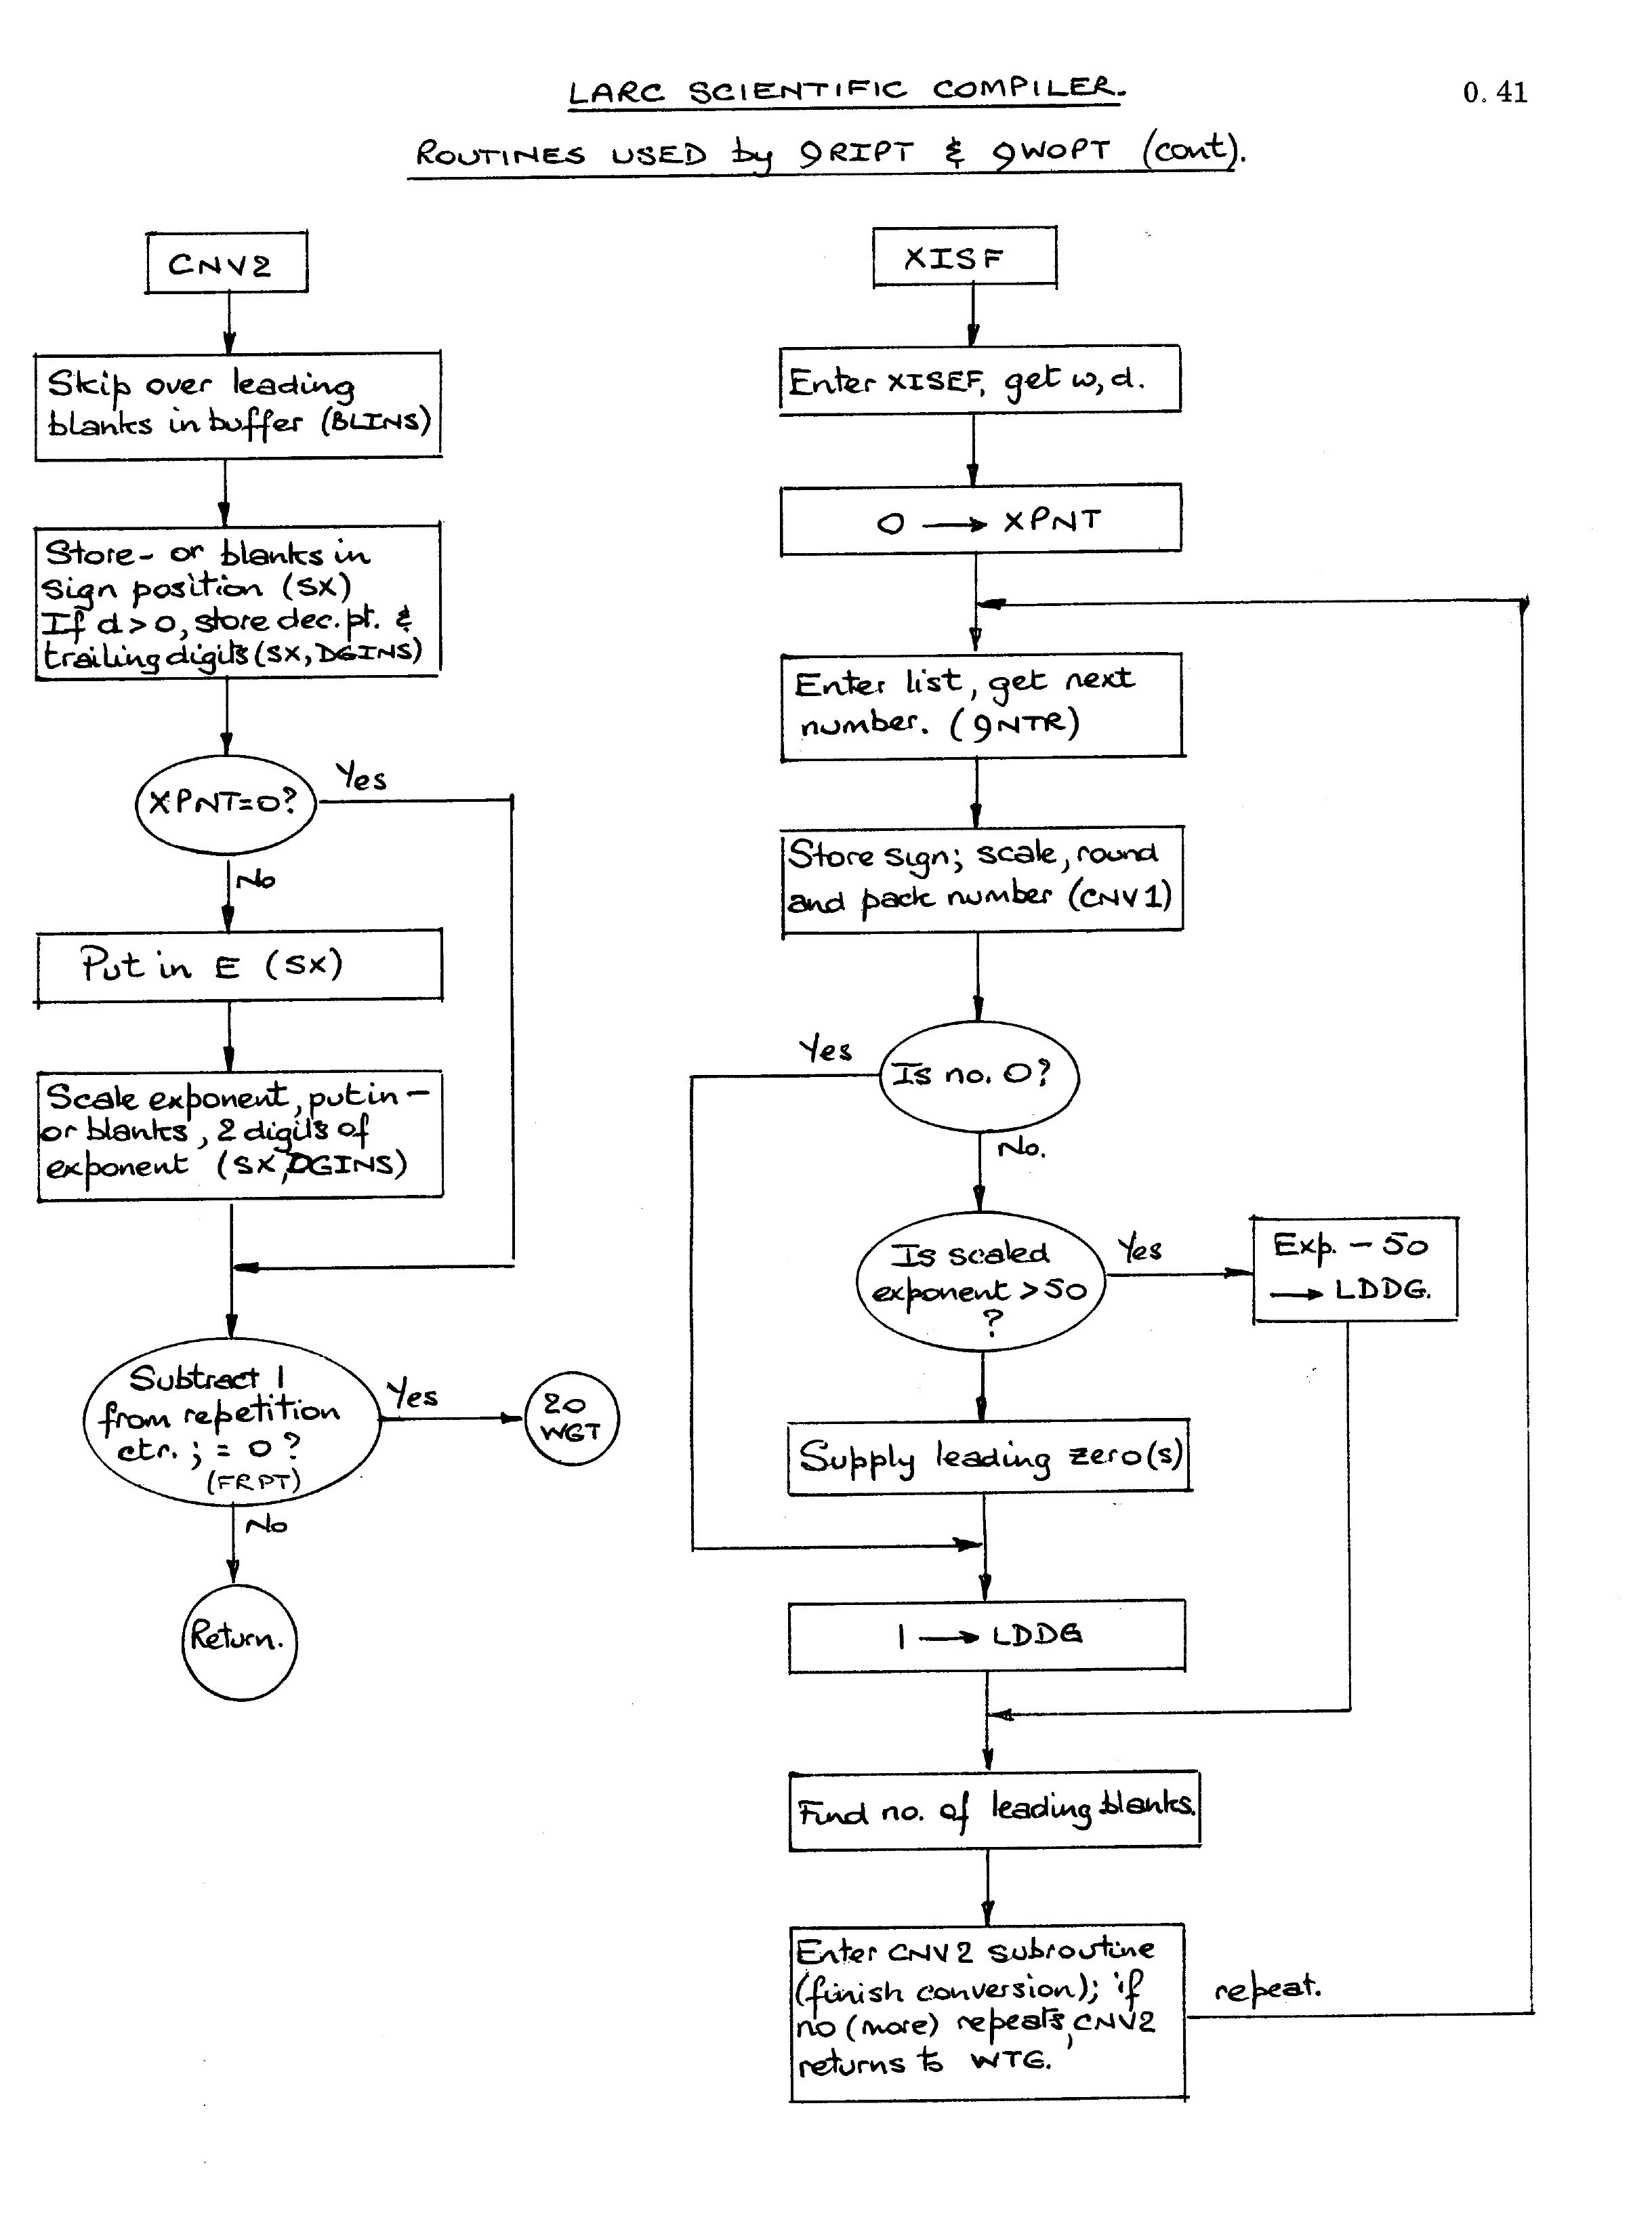 LARC SCIENTIFIC COMPILER.
0.41
ROUTINES USED by 9RIPT & 9WOPT (cont).
CNV2
Skip over leading
blanks in buffer (BLINS)
Store - or blanks in
sign position (SX)
If d > 0, store dec. pt. &
trailing digits (SX, DGINS)
XPNT=0?
Yes
No
Put in E (SX)
Scale exponent, put in -
or blanks, 2 digits of
exponent (SX, DGINS)
Subtract 1
from repetition
ctr. ; = 0 ?
(FRPT)
Yes
20
WGT
No
Return.
XISF
Enter XISEF, get w, d.
0 → XPNT
Enter list, get next
number. (9NTR)
Store sign; scale, round
and pack number (CNV1)
Is no. 0?
Yes
No.
Is scaled
exponent > 50
?
Yes
Exp. - 50
→ LDDG.
Supply leading zero(s)
1 → LDDG
Find no. of leading blanks.
Enter CNV2 subroutine
(finish conversion); if
no (more) repeats, CNV2
returns to WTG.
repeat.